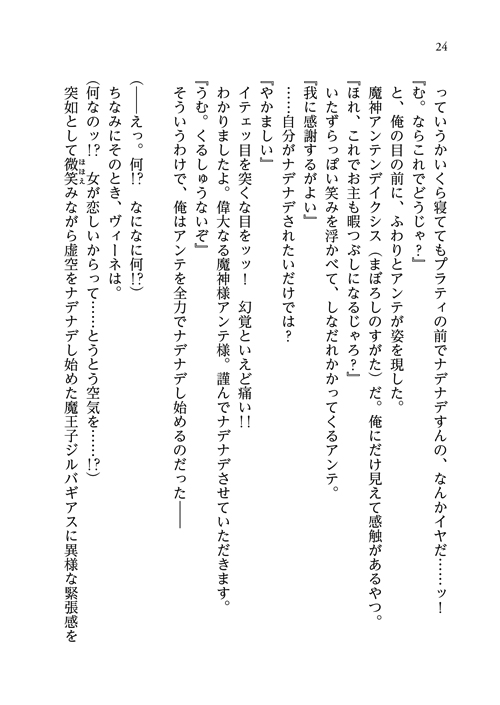 24
っていうかいくら寝ててもプラティの前でナデナデすんの、なんかイヤだ……ッ！
『む。ならこれでどうじゃ？』
と、俺の目の前に、ふわりとアンテが姿を現した。
魔神アンテンデイクシス（まぼろしのすがた）だ。俺にだけ見えて感触があるやつ。
『ほれ、これでお主も暇つぶしになるじゃろ？』
いたずらっぽい笑みを浮かべて、しなだれかかってくるアンテ。
『我に感謝するがよい』
……自分がナデナデされたいだけでは？
『やかましい』
イテェッ目を突くな目をッッ！　幻覚といえど痛い!!
わかりましたよ。偉大なる魔神様アンテ様。謹んでナデナデさせていただきます。
『うむ。くるしゅうないぞ』
そういうわけで、俺はアンテを全力でナデナデし始めるのだった――
（――えっ。何!?　なになに何!?）
ちなみにそのとき、ヴィーネは。
（何なのッ!?　女が恋しいからって……とうとう空気を……!?）
突如として微笑みながら虚空をナデナデし始めた魔王子ジルバギアスに異様な緊張感を
ほほえ